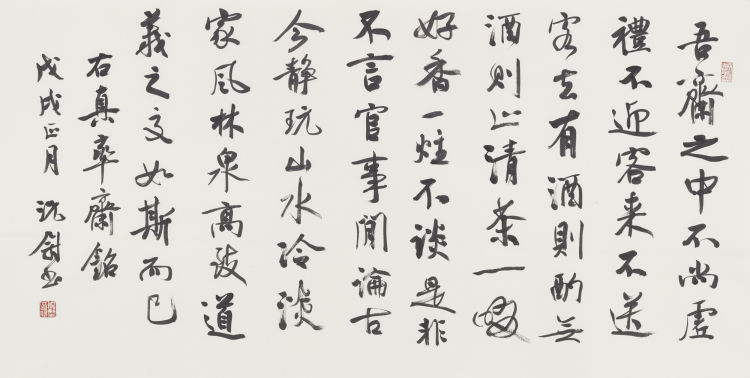 吾齋之中不尚虛
禮不迎客来不送
客去有酒則酌无
酒則止清茶一啜
好香一炷不談是非
不言官事閒論古
今静玩山水冷淡
家風林泉高致道
義之交如斯而已
右真率齋銘
戊戌正月 沈书